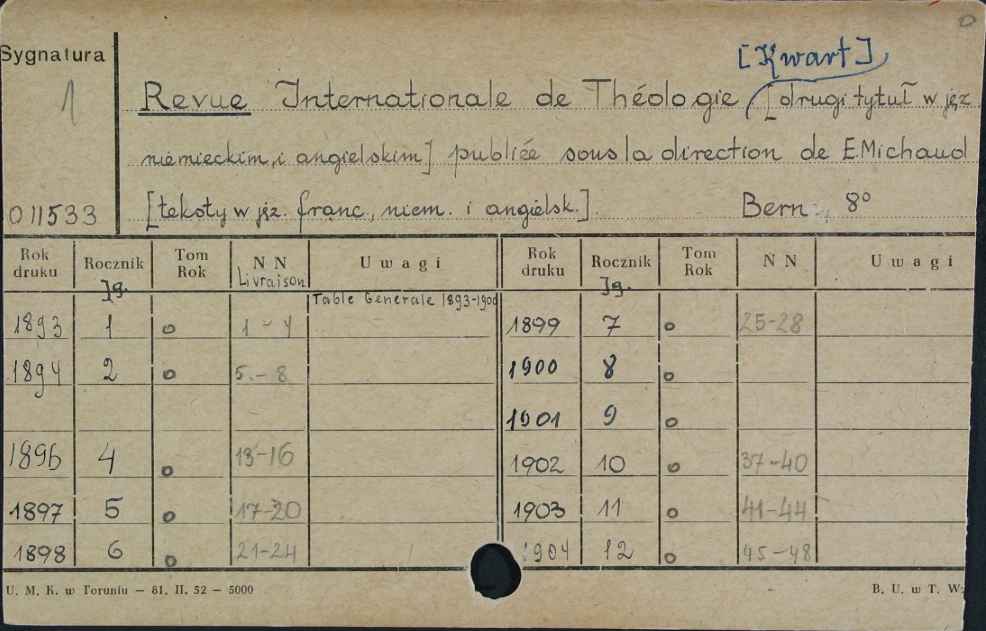 0
Sygnatura
1
[Kwart]
Revue Internationale de Théologie [drugi tytuł w jęz
niemieckim, i angielskim] publiée sous la direction de E. Michaud
011533
[teksty w jęz. franc., niem. i angielsk.]. Bern, 8°
Rok druku Rocznik Tom Rok NN Uwagi Rok druku Rocznik Tom Rok NN Uwagi
Jg. Livraison Jg.
Table Générale 1893-1900
1893 1 o 1-4 1899 7 o 25-28
1894 2 o 5.-8 1900 8 o
1901 9 o
1896 4 o 13-16 1902 10 o 37-40
1897 5 o 17-20 1903 11 o 41-44
1898 6 o 21-24 1904 12 o 45-48
U. M. K. w Toruniu — 81. II. 52 — 5000 B. U. w T. W: